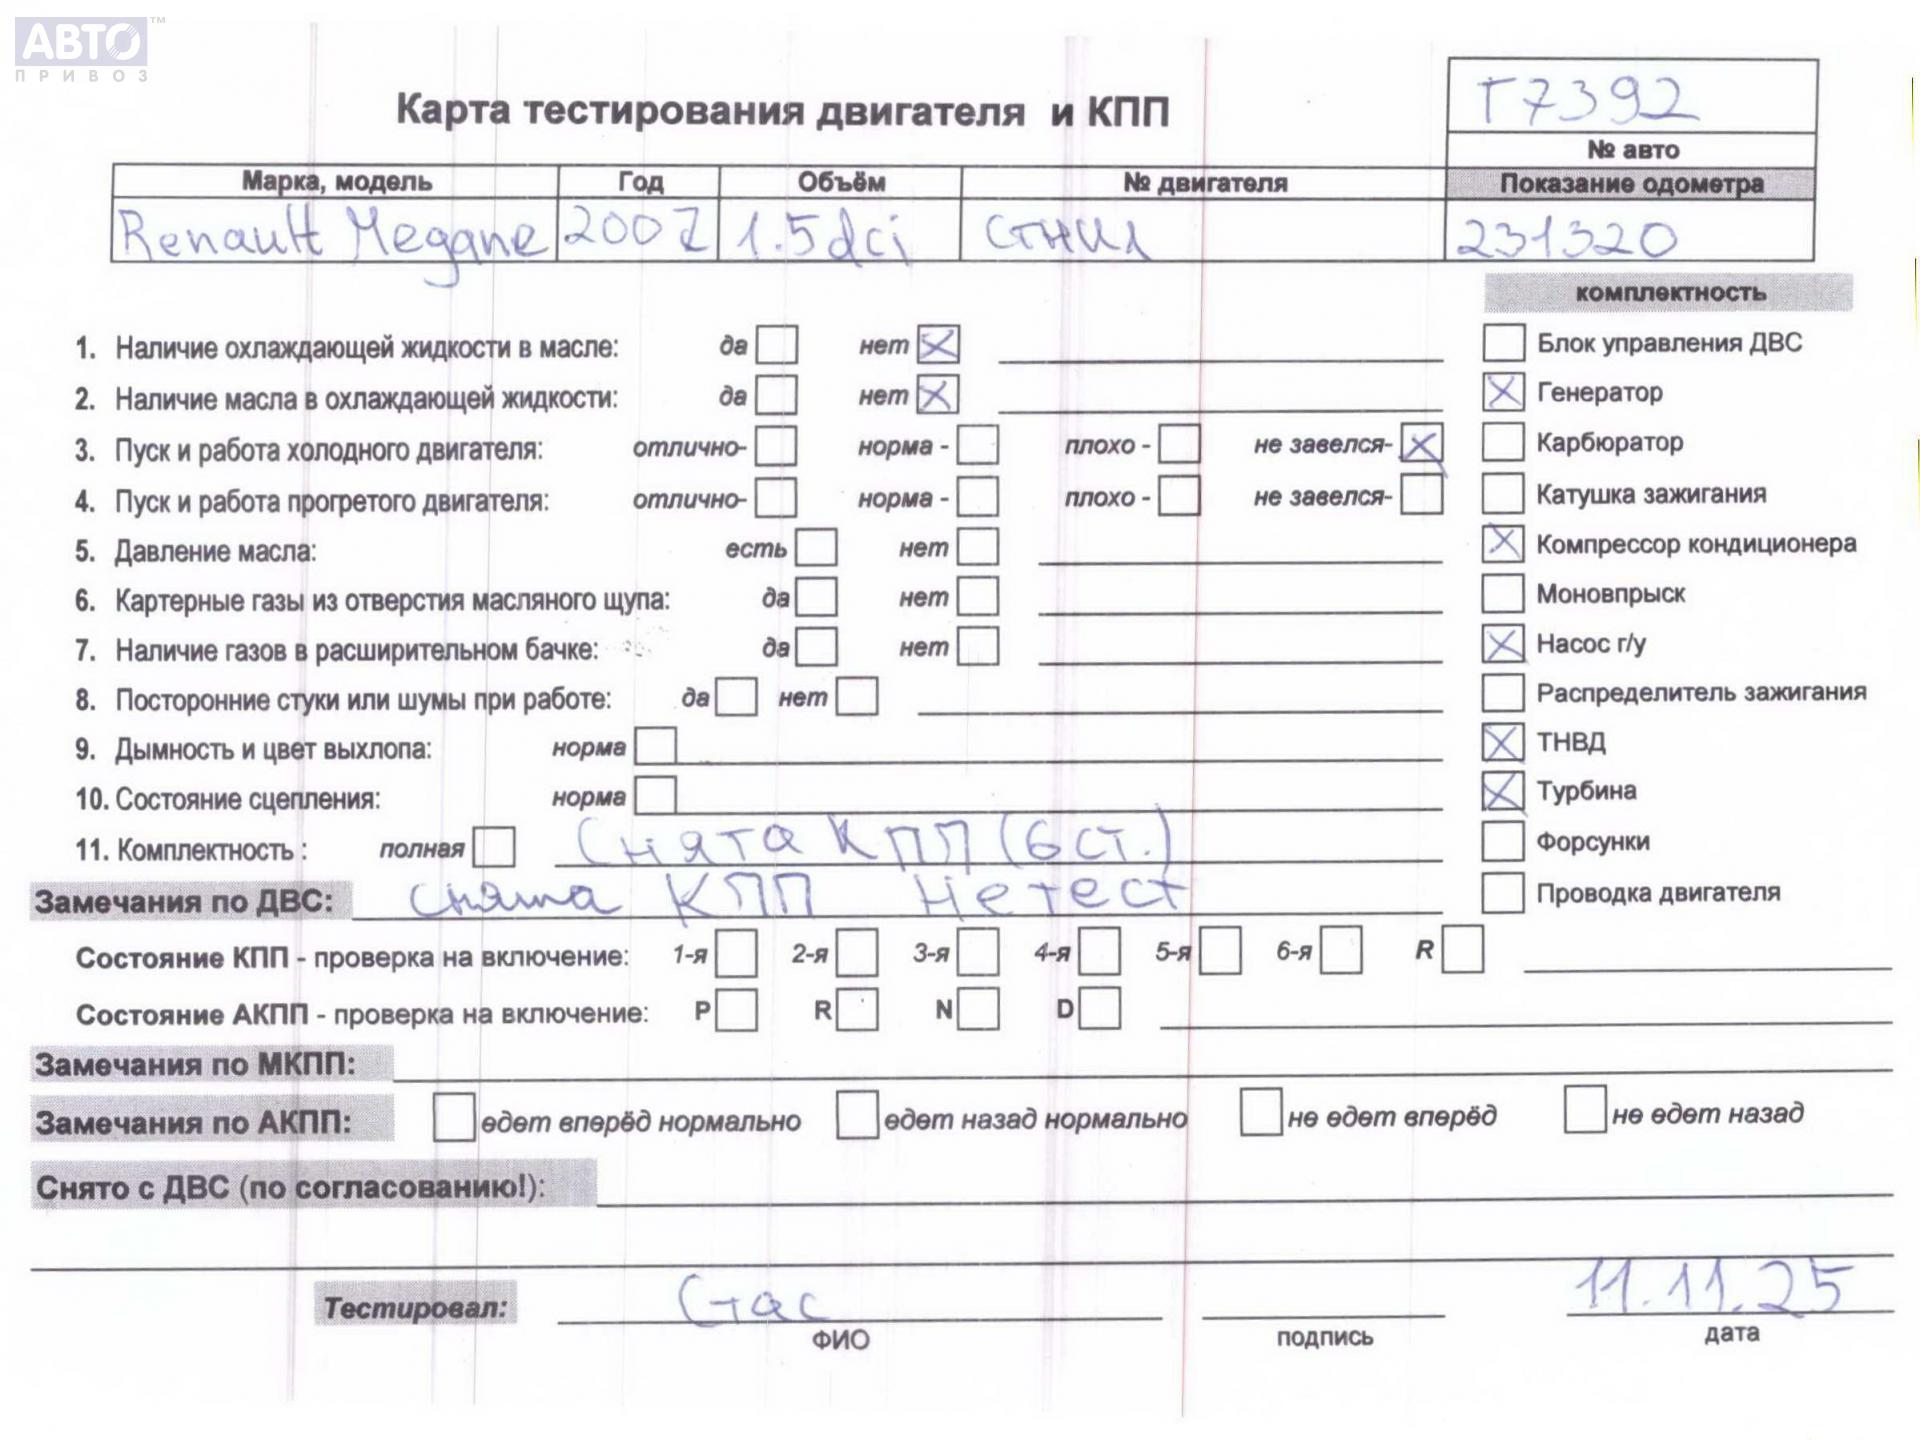 АВТО™
ПРИВОЗ
Карта тестирования двигателя и КПП
Т7392
№ авто
Марка, модель Год Объём № двигателя Показание одометра
Renault Megane 2007 1.5dci сгнил 231320
комплектность
1. Наличие охлаждающей жидкости в масле: да нет
Блок управления ДВС
2. Наличие масла в охлаждающей жидкости: да нет
Генератор
3. Пуск и работа холодного двигателя: отлично- норма - плохо - не завелся-
Карбюратор
4. Пуск и работа прогретого двигателя: отлично- норма - плохо - не завелся-
Катушка зажигания
5. Давление масла: есть нет
Компрессор кондиционера
6. Картерные газы из отверстия масляного щупа: да нет
Моновпрыск
7. Наличие газов в расширительном бачке: да нет
Насос г/у
8. Посторонние стуки или шумы при работе: да нет
Распределитель зажигания
9. Дымность и цвет выхлопа: норма
ТНВД
10. Состояние сцепления: норма
Турбина
11. Комплектность : полная Снята КПП (6ст.)
Форсунки
Замечания по ДВС: снята КПП Не тест
Проводка двигателя
Состояние КПП - проверка на включение: 1-я 2-я 3-я 4-я 5-я 6-я R
Состояние АКПП - проверка на включение: P R N D
Замечания по МКПП:
Замечания по АКПП: едет вперёд нормально едет назад нормально не едет вперёд не едет назад
Снято с ДВС (по согласованию!):
Тестировал: Стас 11.11.25
ФИО подпись дата